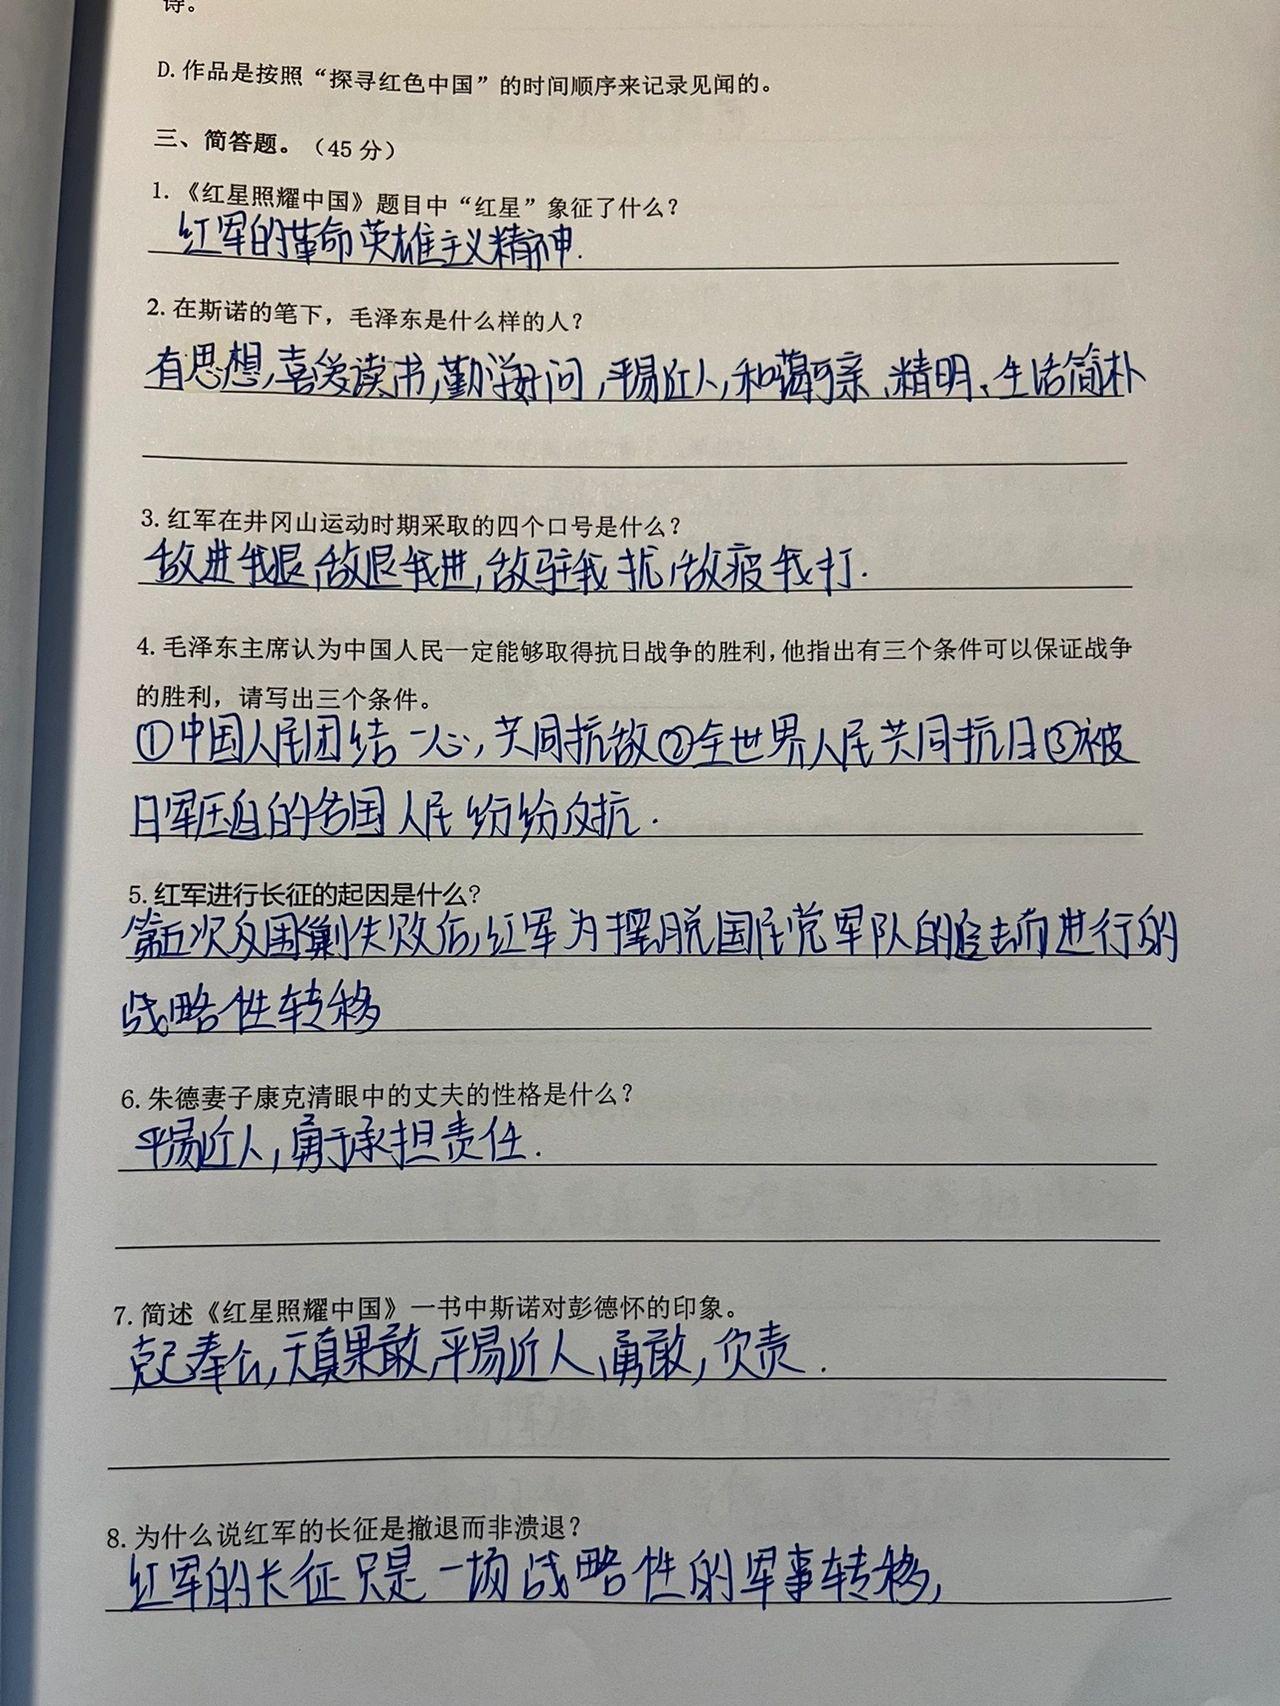 诗。
D. 作品是按照“探寻红色中国”的时间顺序来记录见闻的。
三、简答题。（45 分）
1. 《红星照耀中国》题目中“红星”象征了什么？
红军的革命英雄主义精神.
2. 在斯诺的笔下，毛泽东是什么样的人？
有思想,喜爱读书,勤学好问,平易近人,和蔼可亲、精明、生活简朴
3. 红军在井冈山运动时期采取的四个口号是什么？
敌进我退,敌退我进,敌驻我扰,敌疲我打.
4. 毛泽东主席认为中国人民一定能够取得抗日战争的胜利，他指出有三个条件可以保证战争
的胜利，请写出三个条件。
①中国人民团结一心,共同抗敌②全世界人民共同抗日③被
日军压迫的各国人民纷纷反抗.
5. 红军进行长征的起因是什么？
第五次反围剿失败后,红军为摆脱国民党军队的追击而进行的
战略性转移
6. 朱德妻子康克清眼中的丈夫的性格是什么？
平易近人,勇于承担责任.
7. 简述《红星照耀中国》一书中斯诺对彭德怀的印象。
克己奉公,天真果敢,平易近人、勇敢,负责.
8. 为什么说红军的长征是撤退而非溃退？
红军的长征只是一场战略性的军事转移,